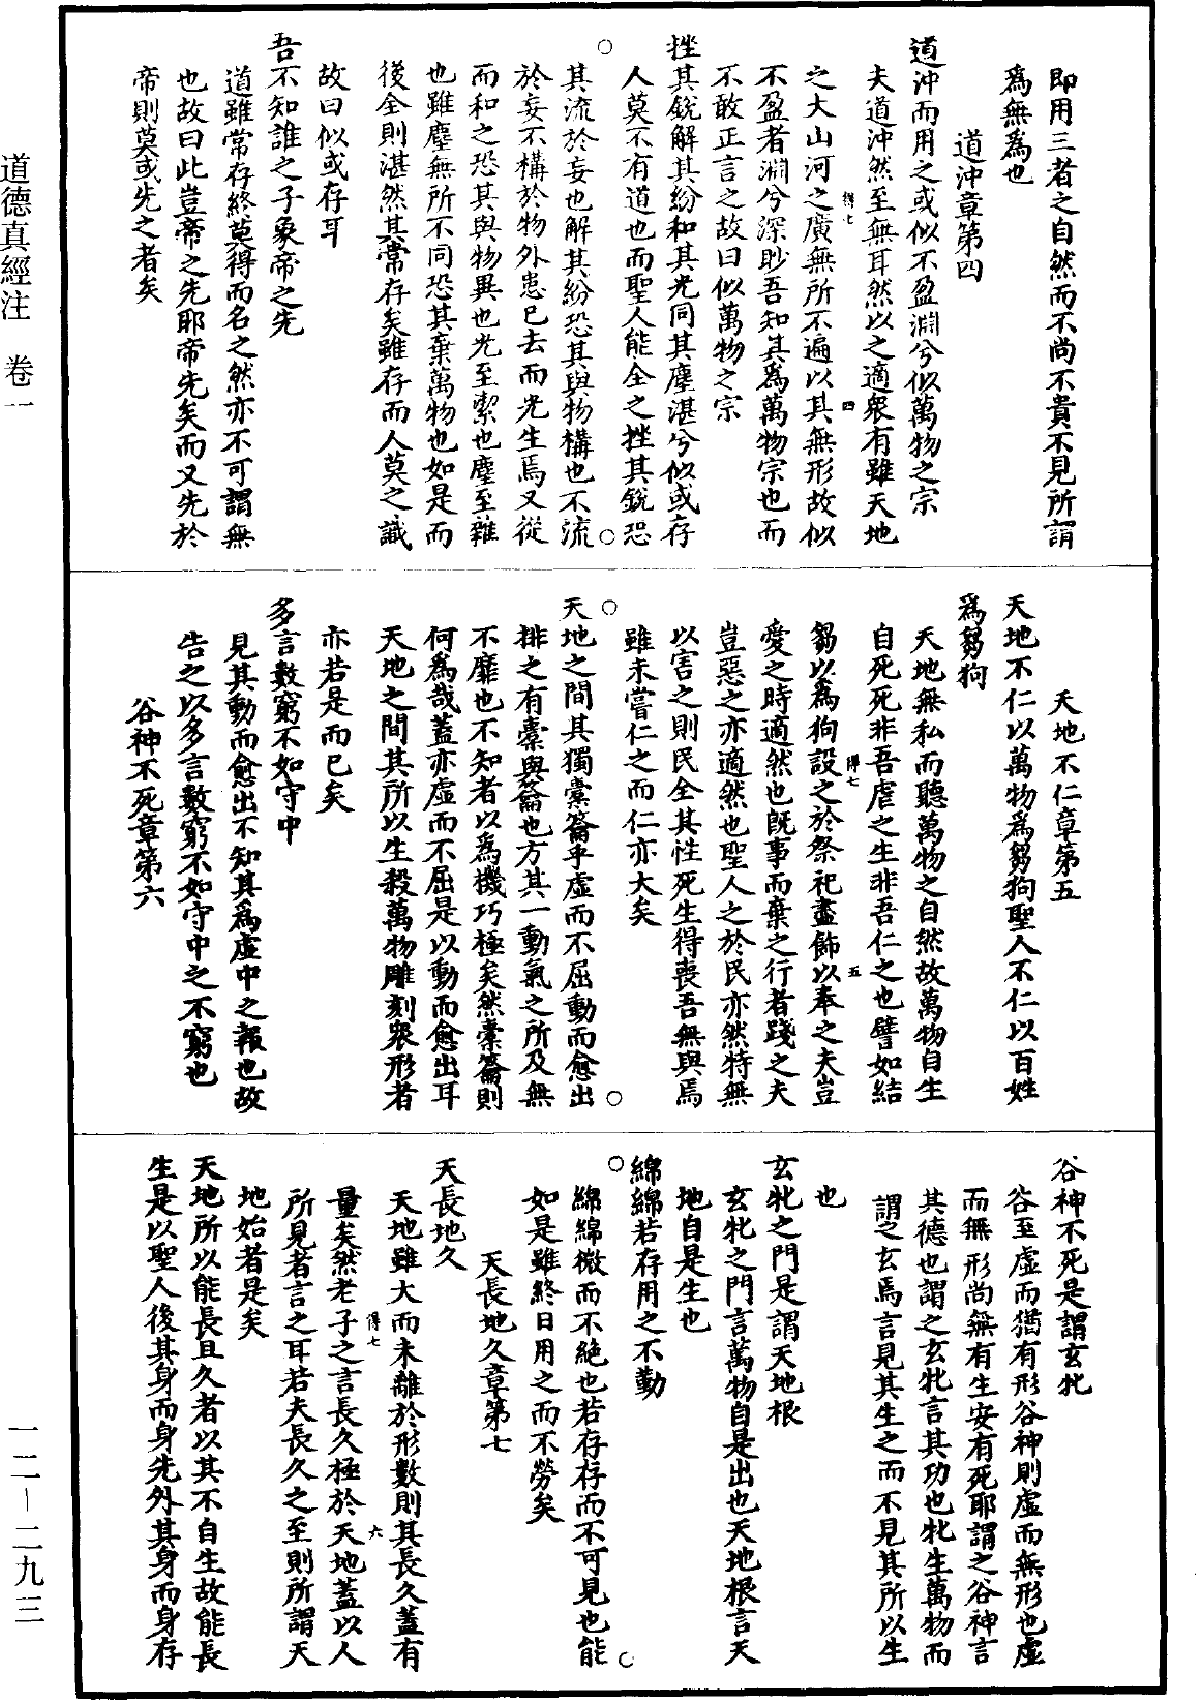 即用三者之自然而不尚不貴不見所謂
爲無爲也
道沖章第四
道沖而用之或似不盈淵兮似萬物之宗
夫道沖然至無耳然以之適衆有雖天地
之大山河之廣無所不遍以其無形故似
不盈者淵兮深眇吾知其爲萬物宗也而
不敢正言之故曰似萬物之宗
挫其銳解其紛和其光同其塵湛兮似或存
人莫不有道也而聖人能全之挫其銳恐
其流於妄也解其紛恐其與物構也不流
於妄不構於物外患已去而光生焉又從
而和之恐其與物異也光至絜也塵至雜
也雖塵無所不同恐其棄萬物也如是而
後全則湛然其常存矣雖存而人莫之識
故曰似或存耳
吾不知誰之子象帝之先
道雖常存終莫得而名之然亦不可謂無
也故曰此豈帝之先耶帝先矣而又先於
帝則莫或先之者矣
天地不仁章第五
天地不仁以萬物爲芻狗聖人不仁以百姓
爲芻狗
天地無私而聽萬物之自然故萬物自生
自死死非吾虐之生非吾仁之也譬如結
芻以爲狗設之於祭祀盡飾以奉之夫豈
愛之時適然也旣事而棄之行者踐之夫
豈惡之亦適然也聖人之於民亦然特無
以害之則民全其性死生得喪吾無與焉
雖未嘗仁之而仁亦大矣
天地之間其猶橐籥乎虛而不屈動而愈出
排之有橐與籥也方其一動氣之所及無
不靡也不知者以爲機巧極矣然橐籥則
何爲哉蓋亦虛而不屈是以動而愈出耳
天地之間其所以生殺萬物雕刻衆形者
亦若是而已矣
多言數窮不如守中
見其動而愈出不知其爲虛中之報也故
告之以多言數窮不如守中之不窮也
谷神不死章第六
谷神不死是謂玄牝
谷至虛而猶有形谷神則虛而無形也虛
而無形尚無有生安有死耶謂之谷神言
其德也謂之玄牝言其功也牝生萬物而
謂之玄焉言見其生之而不見其所以生
也
玄牝之門是謂天地根
玄牝之門言萬物自是出也天地根言天
地自是生也
綿綿若存用之不勤
綿綿微而不絶也若存存而不可見也能
如是雖終日用之而不勞矣
天長地久章第七
天長地久
天地雖大而未離於形數則其長久蓋有
量矣然老子之言長久極於天地蓋以人
所見者言之耳若夫長久之至則所謂天
地始者是矣
天地所以能長且久者以其不自生故能長
生是以聖人後其身而身先外其身而身存
道德真經注 卷一
一二—二九三